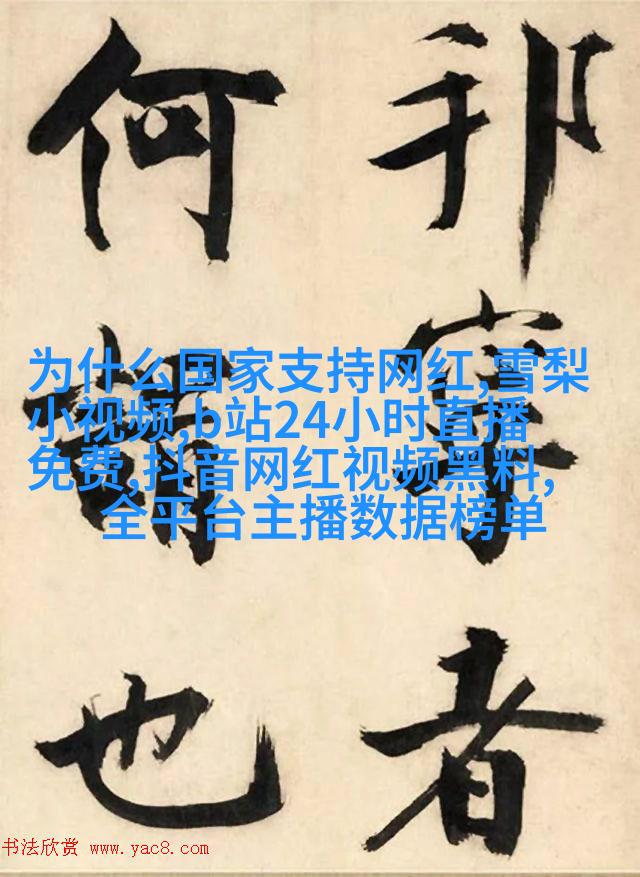 邦者
何也
为什么国家支持网红,雪梨
小视频,b站24小时直播
免费,抖音网红视频黑料,
全平台主播数据榜单
书法欣赏 www.yac8.com